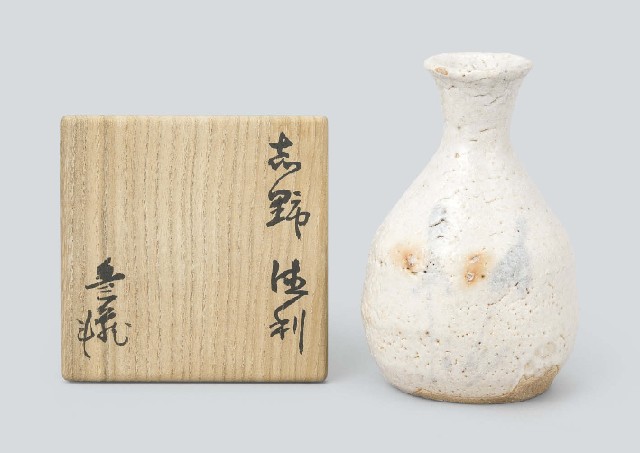 志野 徳利
豊蔵 㐂